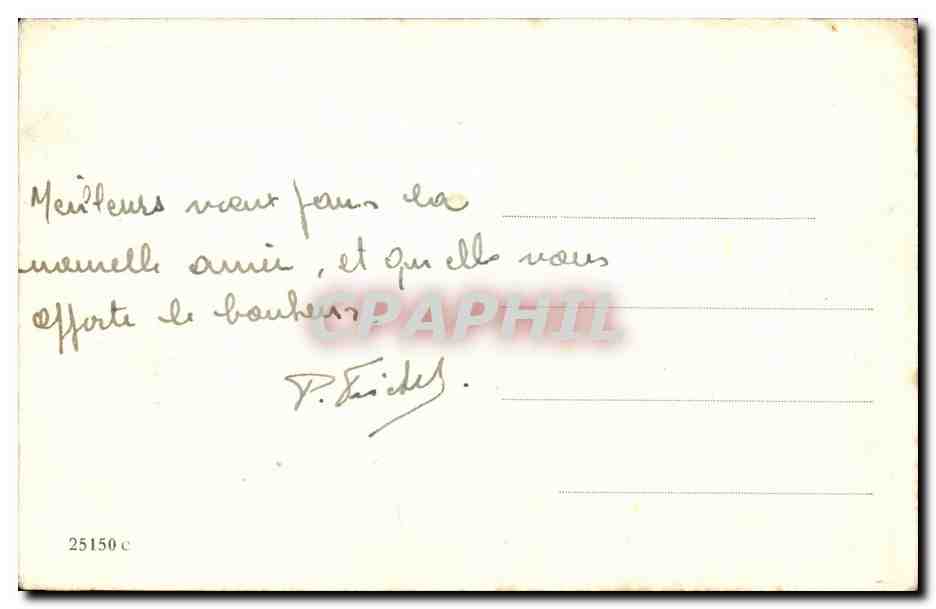 Meilleurs vœux pour la
nouvelle année, et qu'elle vous
offorte le bonheur.
CPAPHIL
P.
25150 c